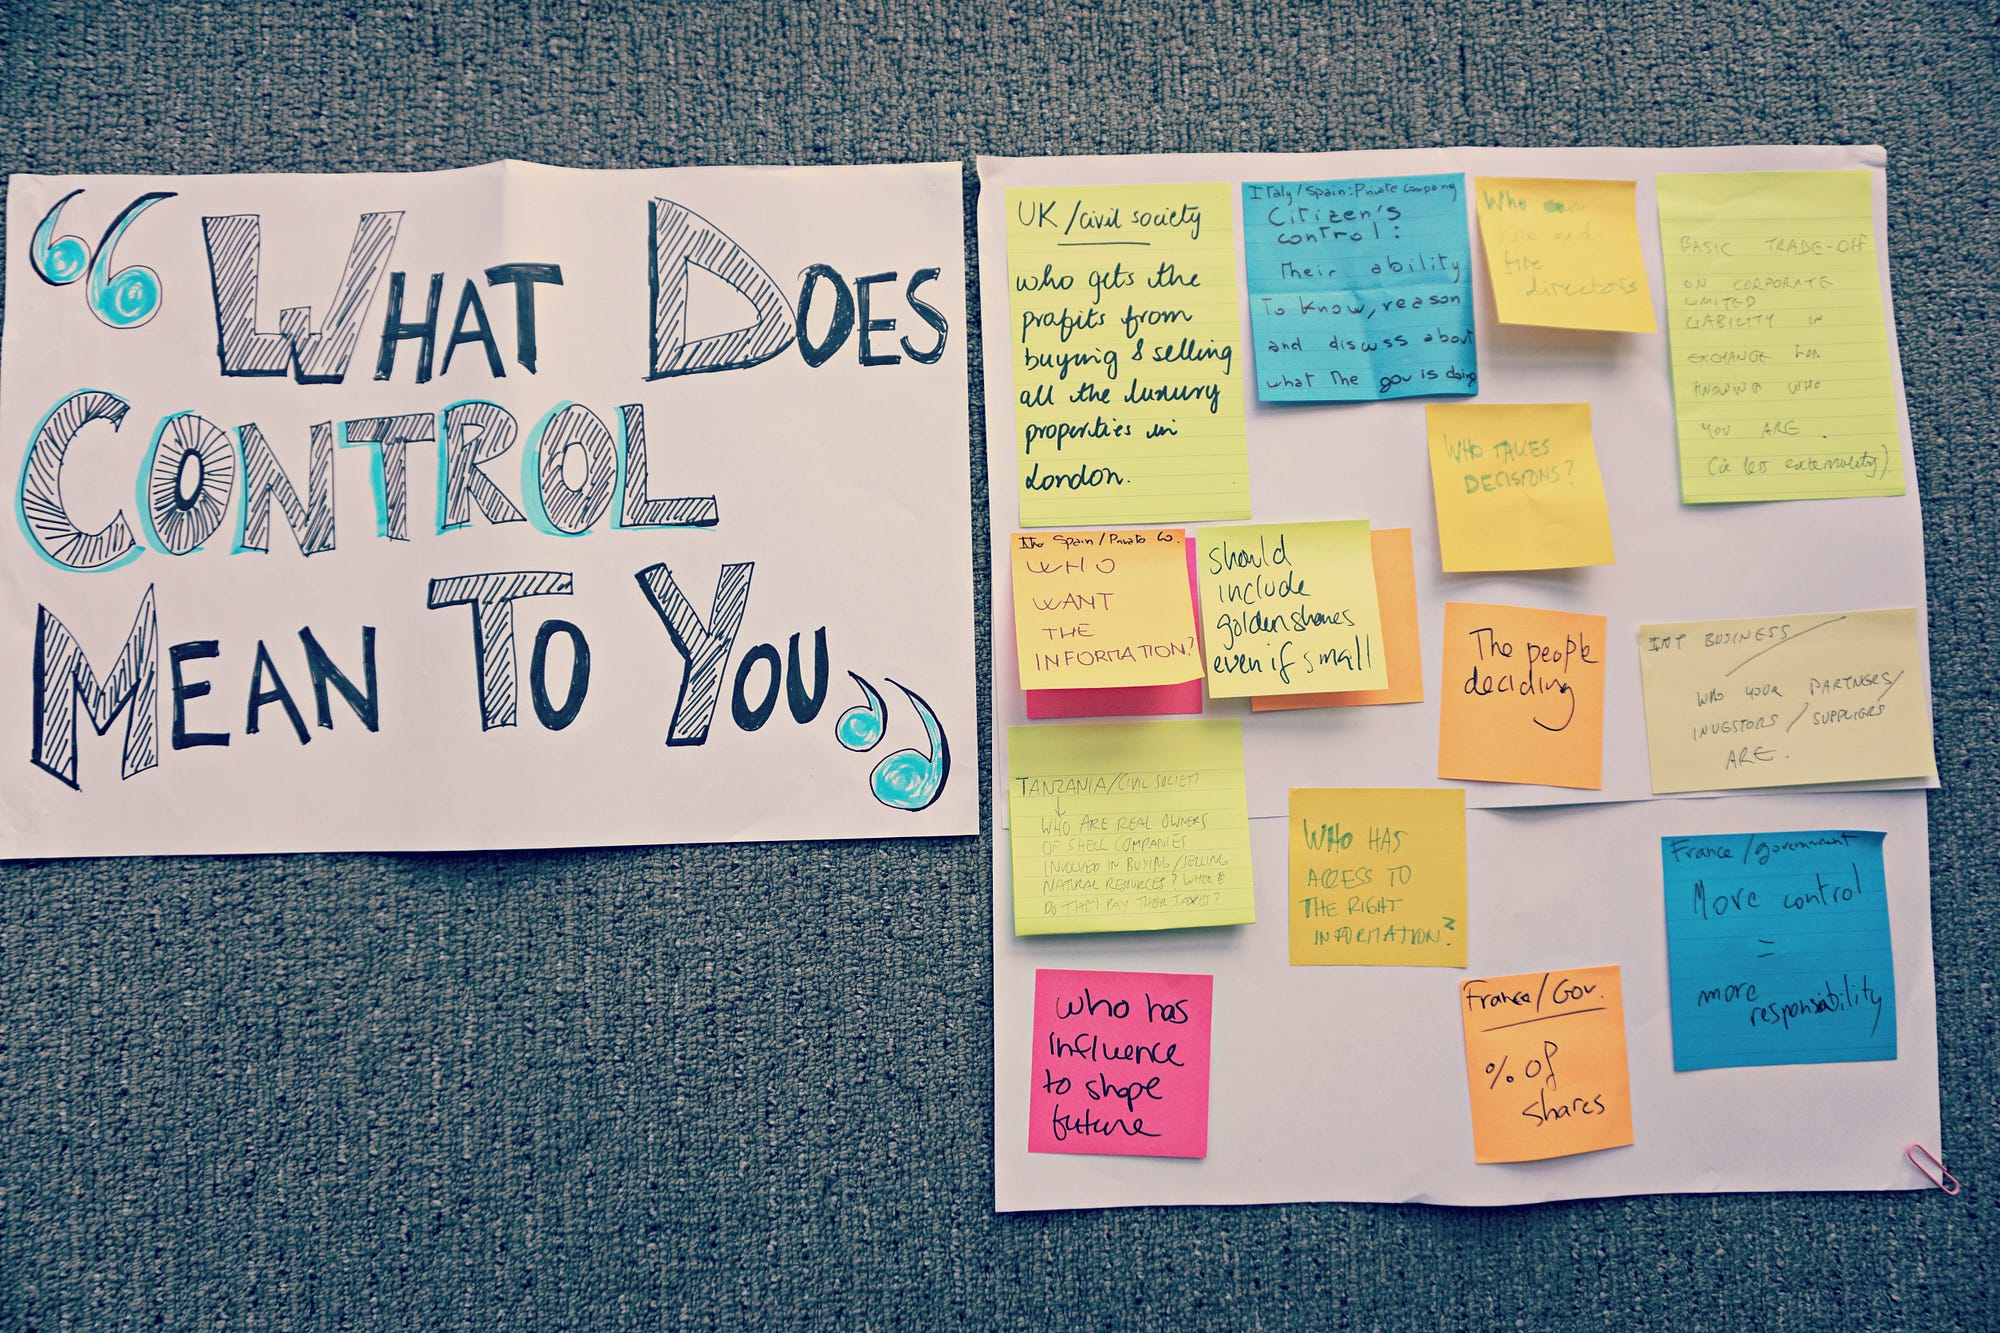 “ What Does
Control
Mean To You ”
UK / civil society
who gets the
profits from
buying & selling
all the luxury
properties in
London.
Italy/Spain: Private Company
Citizen's
control:
Their ability
To know, reason
and discuss about
what The gov is doing
Who can
hire and
fire
directors
BASIC TRADE-OFF
ON CORPORATE
LIMITED
LIABILITY IN
EXCHANGE FOR
KNOWING WHO
YOU ARE.
(ie less externality).
WHO TAKES
DECISIONS?
Spain/Private Co.
WHO
WANT
THE
INFORMATION?
should
include
golden shares
even if small
The people
deciding
INT BUSINESS
WHO YOUR PARTNERS/
INVESTORS / SUPPLIERS
ARE.
TANZANIA/CIVIL SOCIETY
WHO ARE REAL OWNERS
OF SHELL COMPANIES
INVOLVED IN BUYING/SELLING
NATURAL RESURCES? WHERE
DO THEY PAY THEIR TAXES?
WHO HAS
ACCESS TO
THE RIGHT
INFORMATION?
France/government
More control
=
more
responsability
who has
influence
to shape
future
France/Gov.
% of
shares